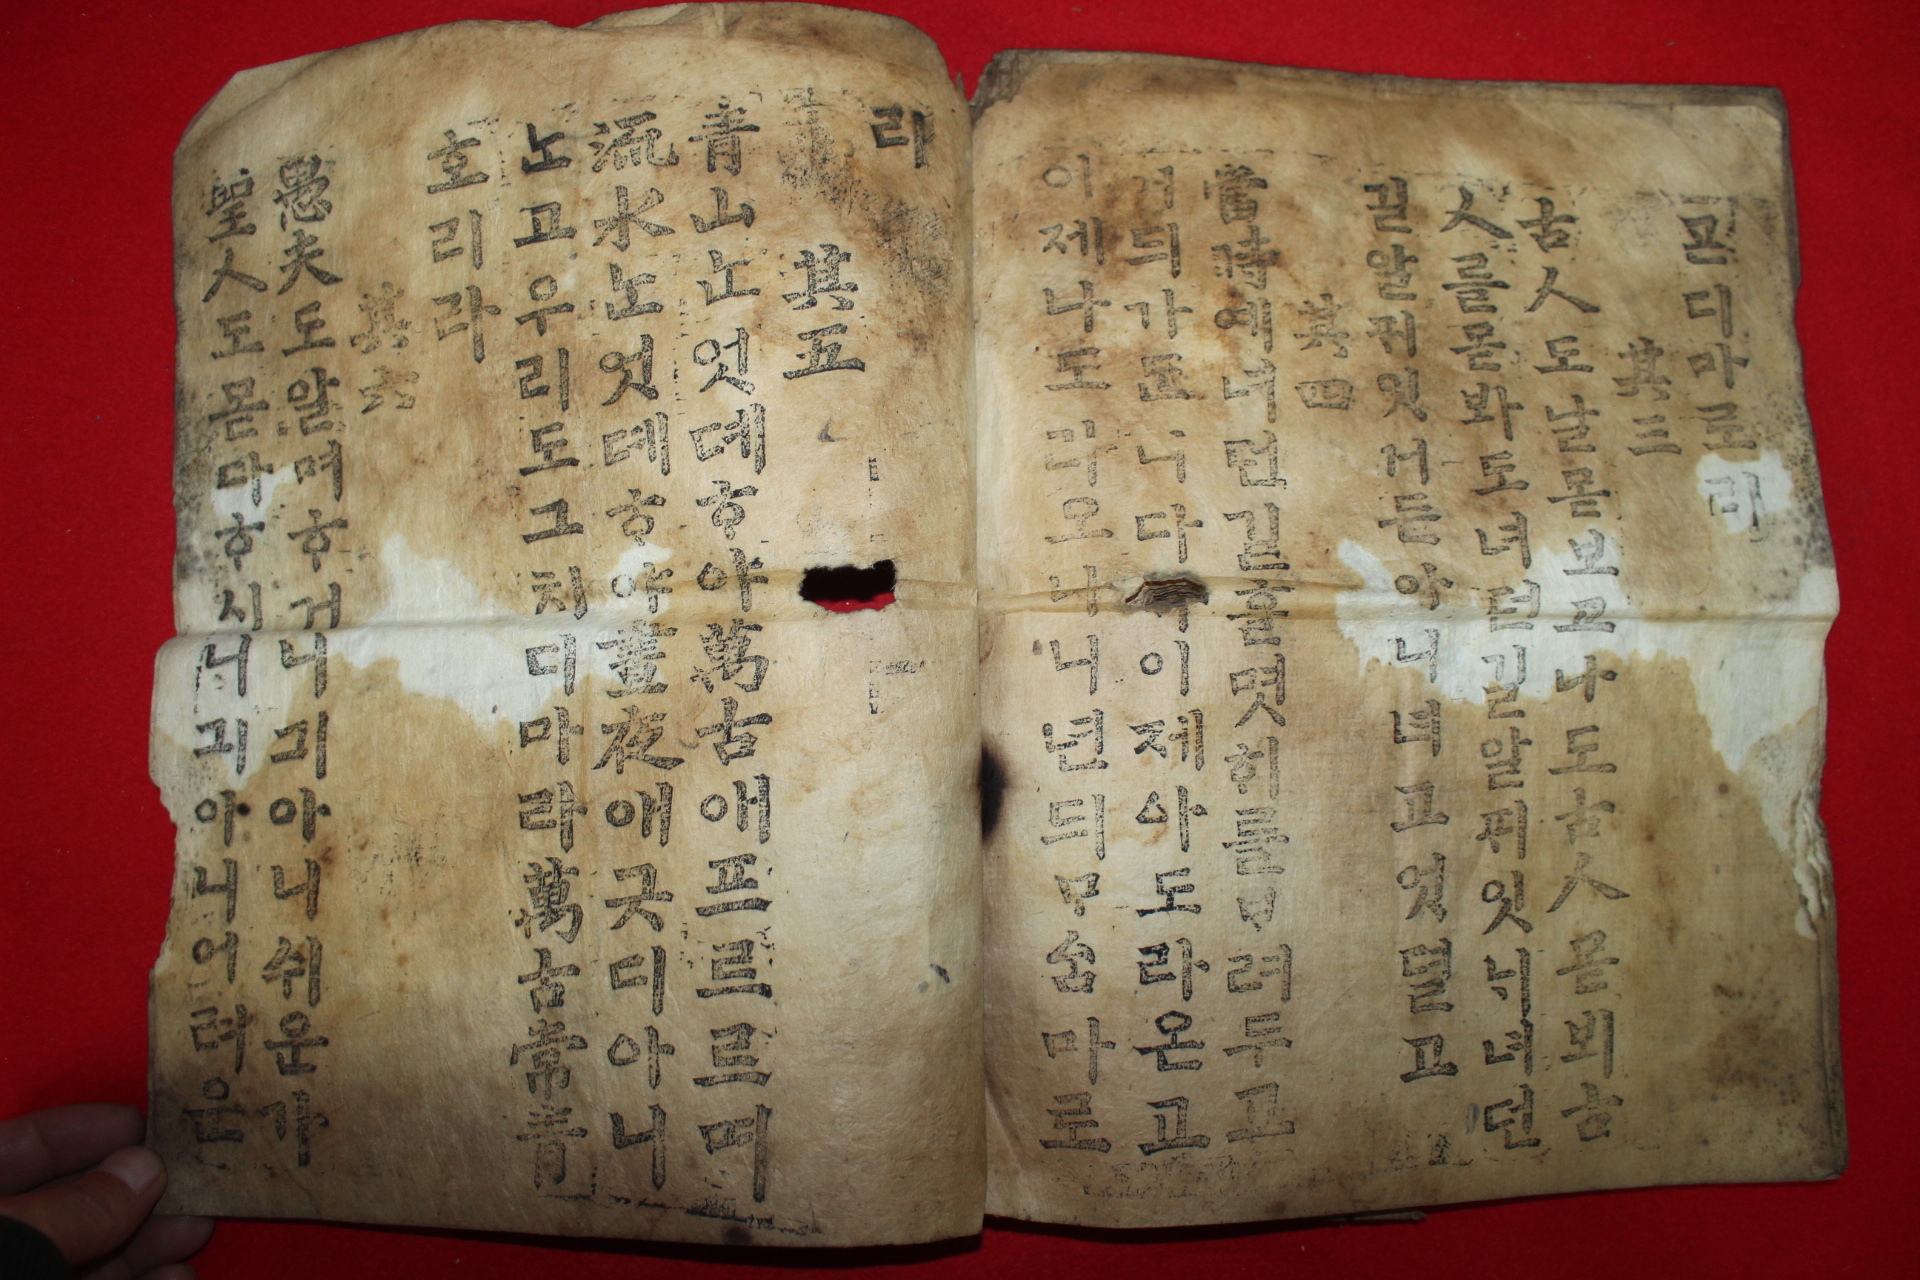 ᄀᆞᆮ디마로리
其三
古人도날몯보고나도古人몯뵈古
人를몯봐도녀던길알ᄑᆡ잇ᄂᆡ녀던
길알ᄑᆡ잇거든아니녀고엇뎔고
其四
當時예녀던길흘몃ᄒᆡ를ᄇᆞ려두고
어듸가ᄃᆞᆫ니다가이제ᅀᅡ도라온고
이제나도라오나니년듸ᄆᆞᅀᆞᆷ마로
라
其五
靑山ᄂᆞᆫ엇뎨ᄒᆞ야萬古애프르르며
流水ᄂᆞᆫ엇뎨ᄒᆞ야晝夜애긋디아니
ᄂᆞᆫ고우리도그치디마라萬古常靑
호리라
其六
愚夫도알며ᄒᆞ거니긔아니쉬운가
聖人도몯다ᄒᆞ시니긔아니어려운